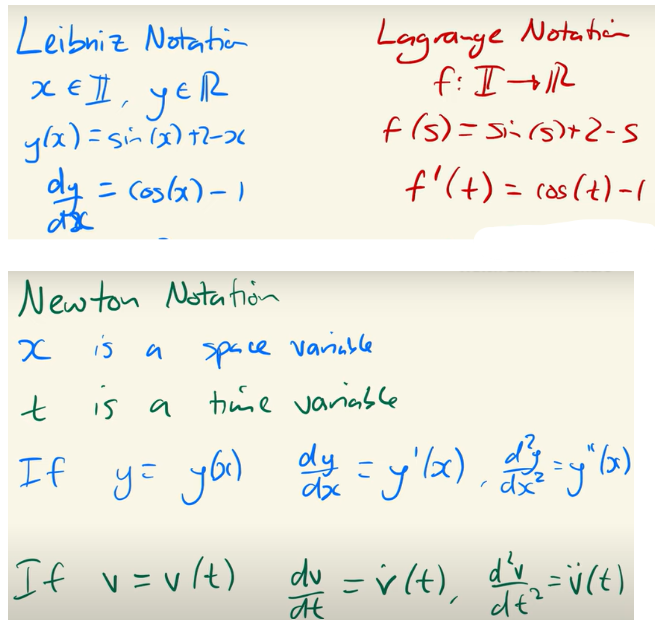 Leibniz Notation
x ∈ 𝕀, y ∈ ℝ
y(x) = sin(x) + 2 - x
dy/dx = cos(x) - 1
Lagrange Notation
f: 𝕀 → ℝ
f(s) = sin(s) + 2 - s
f'(t) = cos(t) - 1
Newton Notation
x is a space variable
t is a time variable
If y = y(x) dy/dx = y'(x), d²y/dx² = y"(x)
If v = v(t) dv/dt = v̇(t), d²v/dt² = v̈(t)